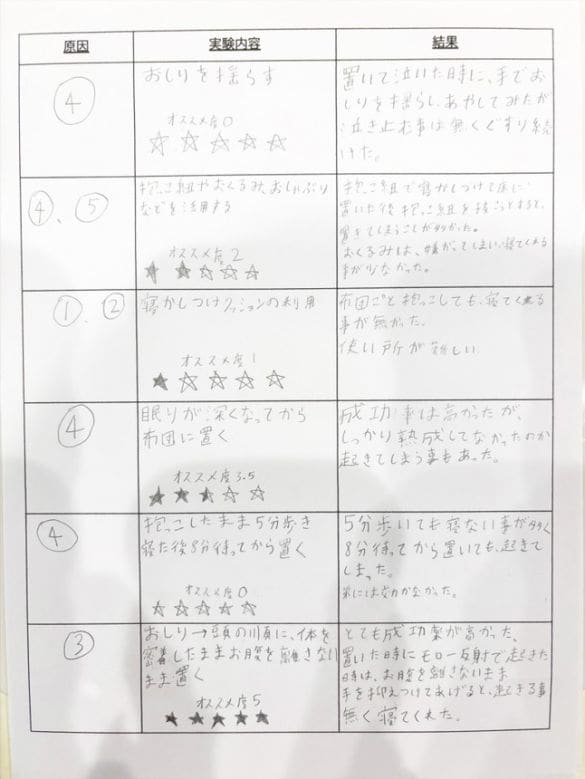 原因 実験内容 結果
④
おしりを揺らす
オススメ度0
☆☆☆☆☆
置いて泣いた時に、手でお
しりを揺らし、あやしてみたが
泣き止む事は無くぐずり続
けた。
④、⑤
抱っこ紐やおくるみ、おしゃぶり
などを活用する
オススメ度2
★★☆☆☆
抱っこ紐で寝かしつけて床に
置いた後抱っこ紐を抜こうとすると、
起きてしまうことが多かった。
おくるみは、嫌がってしまい、寝てくれる
事が少なかった。
①、②
寝かしつけクッションの利用
オススメ度1
★☆☆☆☆
布団ごと抱っこしても、寝てくれる
事が無かった。
使い所が難しい
④
眠りが深くなってから
布団に置く
オススメ度3.5
☆☆
成功率は高かったが、
しっかり熟成してなかったのか
起きてしまう事もあった。
④
抱っこしたまま5分歩き
寝た後8分待ってから置く
オススメ度0
☆☆☆☆☆
5分歩いても寝ない事が多く
8分待ってから置いても、起きて
しまった。
には効力が無かった。
③
おしり→頭の順に、体を
密着したままお腹を離さない
まま置く
オススメ度5
★★★★★
とても成功率が高かった。
置いた時にモロー反射で起きた
時は、お腹を離さないまま
手を抑えつけてあげると、起きる事
無く寝てくれた。